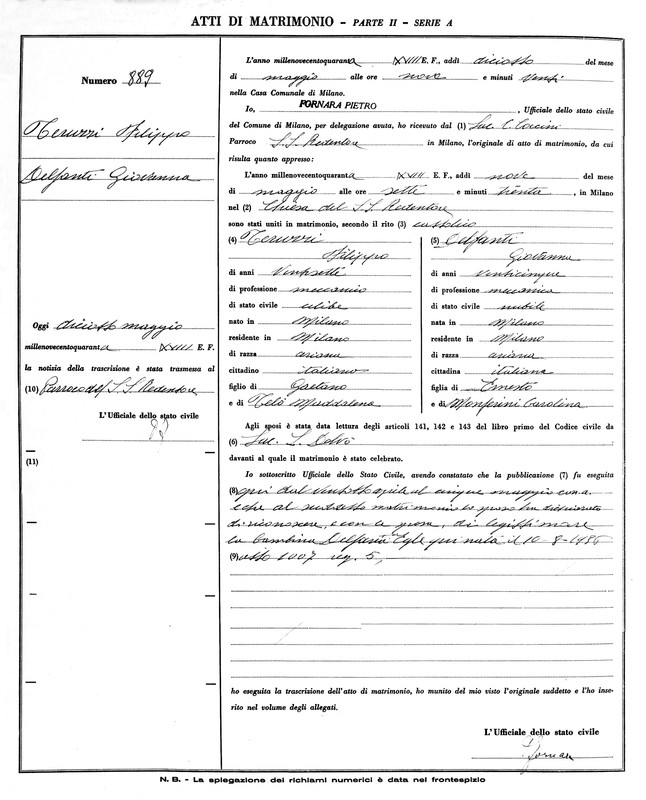 ATTI DI MATRIMONIO - PARTE II - SERIE A
Numero 889
Teruzzi Filippo
Delfanti Giovanna
Oggi diciotto maggio
millenovecentoquaranta XVIII E. F.
la notizia della trascrizione è stata trasmessa al
(10) Parroco del S.S. Redentore
L'Ufficiale dello stato civile
(11)
L'anno millenovecentoquaranta XVIII E. F., addì diciotto del mese
di maggio alle ore nove e minuti venti
nella Casa Comunale di Milano.
Io, FORNARA PIETRO, Ufficiale dello stato civile
del Comune di Milano, per delegazione avuta, ho ricevuto dal (1) Sac. C.
Parroco S.S. Redentore in Milano, l'originale di atto di matrimonio, da cui
risulta quanto appresso:
L'anno millenovecentoquaranta XVIII E. F., addì nove del mese
di maggio alle ore sette e minuti trenta, in Milano
nel (2) Chiesa del S.S. Redentore
sono stati uniti in matrimonio, secondo il rito (3) cattolico
(4) Teruzzi (5) Delfanti
Filippo Giovanna
di anni Ventisette di anni Venticinque
di professione meccanico di professione meccanica
di stato civile celibe di stato civile nubile
nato in Milano nata in Milano
residente in Milano residente in Milano
di razza ariana di razza ariana
cittadino italiano cittadina italiana
figlio di Gaetano figlia di Ernesto
e di Maddalena e di Carolina
Agli sposi è stata data lettura degli articoli 141, 142 e 143 del libro primo del Codice civile da
(6) Sac.
davanti al quale il matrimonio è stato celebrato.
Io sottoscritto Ufficiale dello Stato Civile, avendo constatato che la pubblicazione (7) fu eseguita
(8) qui dal ventotto aprile al cinque maggio con a.
e che al suddetto matrimonio lo sposo ha dichiarato
di riconoscere, e con la sposa, di legittimare
la bambina Delfanti Egle qui nata il 10-8-
(9) atto 1007 reg. 5,
ho eseguita la trascrizione dell'atto di matrimonio, ho munito del mio visto l'originale suddetto e l'ho inse-
rito nel volume degli allegati.
L'Ufficiale dello stato civile
N. B. - La spiegazione dei richiami numerici è data nel frontespizio